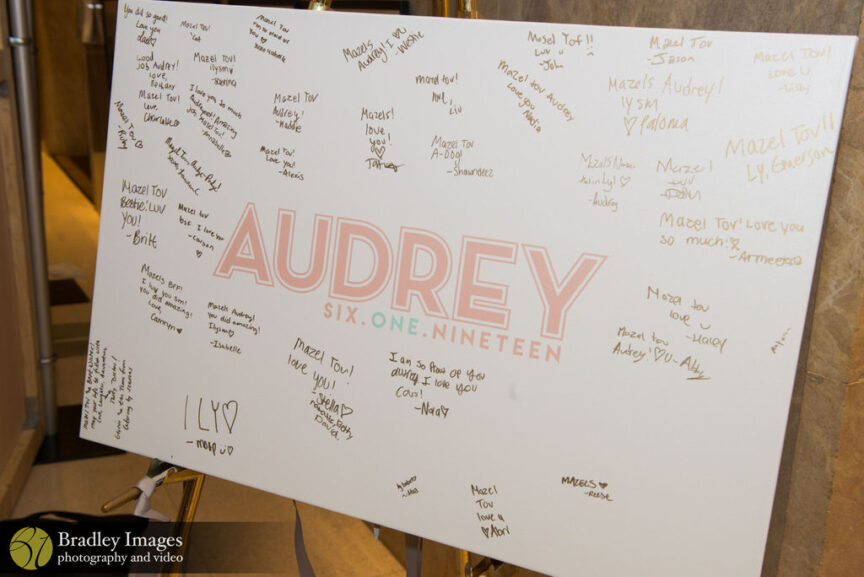 You did so good!
Love you
dad
Mazel Tov
Mazel Tov
you
Mazels
Audrey! I ♡ U
-Westie
Mosel Tof!!
Luv u
-John
Mazel Tov
-Jason
Mazel Tov!
Love u
-Lilly
Good
job Audrey!
Love,
Bethany
Mazel Tov!
ilysm
Mazel Tov!
Love,
Charlotte
I love you so much
Audrey! Amazing
job, Mazel Tov!
Mazel Tov
Audrey!
-Maddie
Mazel Tov!
Love you!
-Alexis
Mazels!
love,
you!
♡
mazel tov!
ILYL,
Liv
Mazel Tov
A-Dog!
-Shawndeez
Mazel Tov Audrey
Love you
Nadia
Mazels Audrey!
lysm
♡Paloma
Mazel Tov!!
LY, Emerson
twin Ly! ♡
-Audrey
Mazel!
luv
Mazel Tov! Love you
so much!
Mazel Tov
-Riley
Mazel Tov
Bestie! Luv
You!
-Britt
Mazel tov
BFF I love you
-Carson
♡
Mazels BFF!
I luv you sm!
You did amazing!
Love,
Camryn♥
Mazels Audrey!
You did amazing!
Ilysm♡
-Isabelle
AUDREY
SIX.ONE.NINETEEN
Mazel tov
love u
-Haley
Mazel tov
Audrey! ♡U -Abby
Mazel Tov!
love you!
-Stella♡
David
I am so proud of you
Audrey I love you
Cous!
-Noa♡
ILY♡
Mazel
Tov
love u
♡Abri
MAZELS♥
-REESE
Bradley Images
photography and video